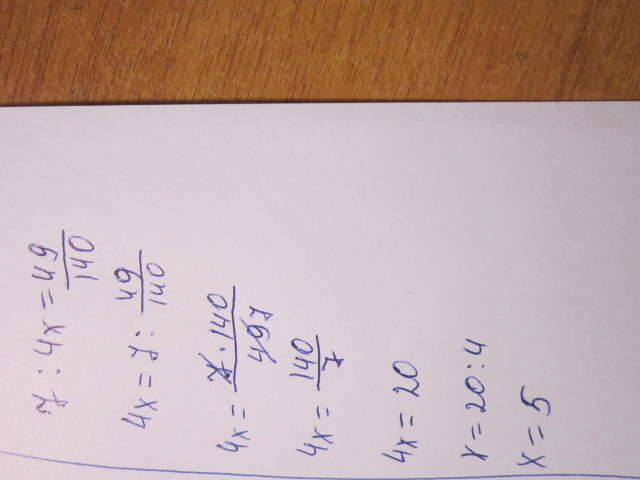 7 : 4x = 49/140
4x = 7 : 49/140
4x = 7 · 140/49 7
4x = 140/7
4x = 20
x = 20 : 4
x = 5